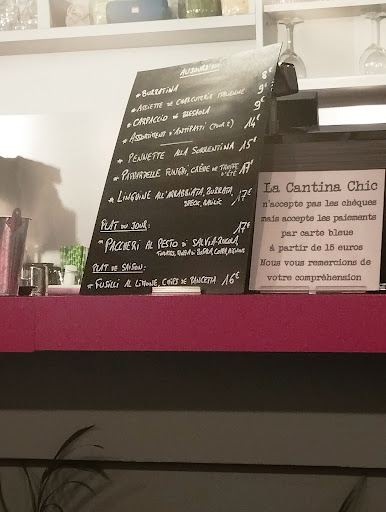 AUJOURD'HUI
* BURRATINA 8€
* ASSIETTE DE CHARCUTERIE ITALIENNE 9€
* CARPACCIO DE BRESAOLA 9€
* ASSORTIMENT D'ANTIPASTI (POUR 2) 14€
* PENNETTE ALLA SORRENTINA 15€
* PAPPARDELLE FUNGHI, CRÈME DE TRUFFE D'ÉTÉ 17€
* LINGUINE ALL'ARRABBIATA, BURRATA, 17€
SPECK, BASILIC
PLAT DU JOUR: 17€
* PACCHERI AL PESTO DI SALVIA-RUCOLA,
TOMATES, BUFALA
PLAT DE SAISON:
* FUSILLI AL LIMONE, CHIPS DE PANCETTA 16€
La Cantina Chic
n'accepte pas les chèques
mais accepte les paiements
par carte bleue
à partir de 15 euros
Nous vous remercions de
votre compréhension